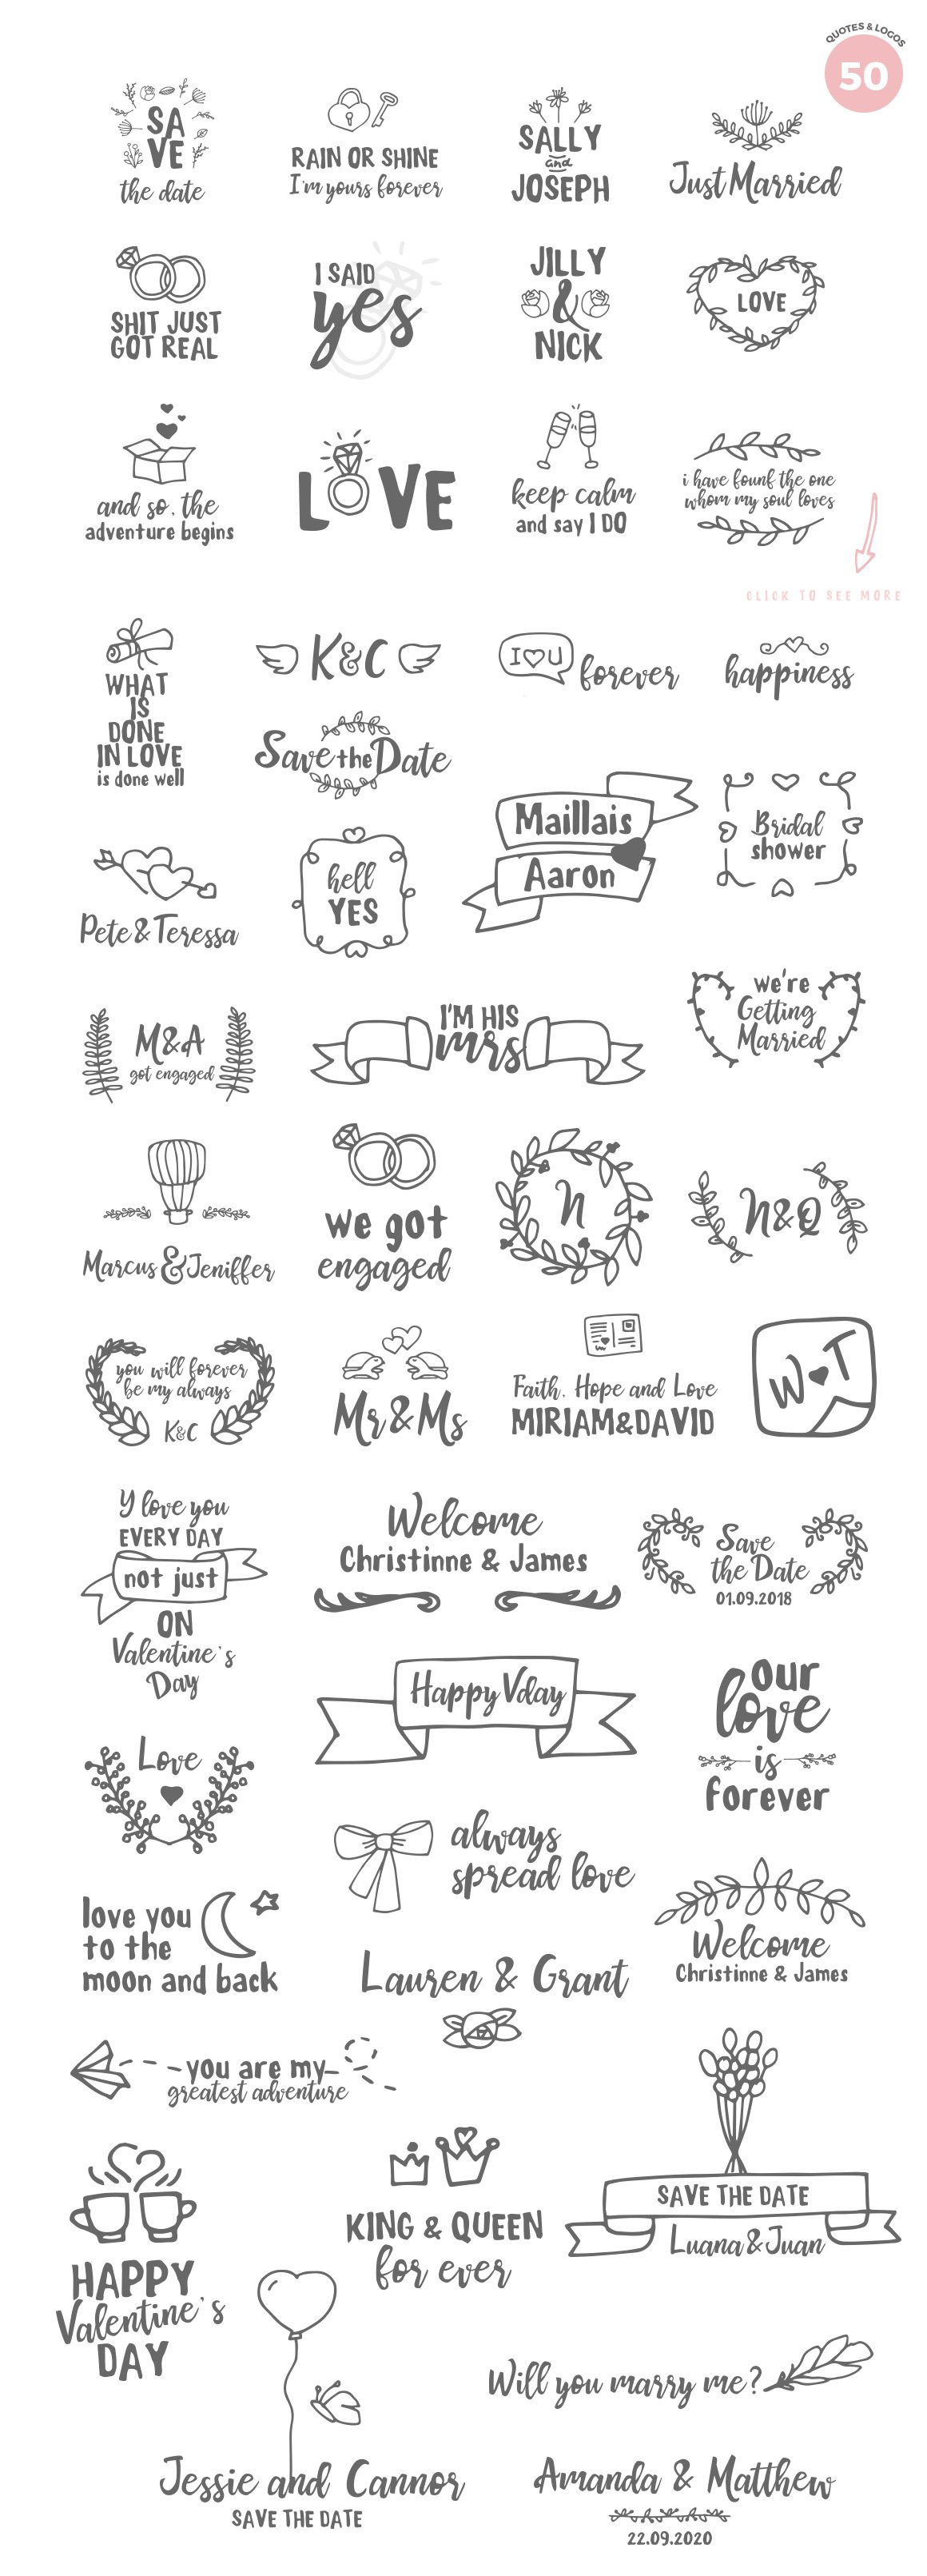 QUOTES & LOGOS
50
SA
VE
the date
RAIN OR SHINE
I'm yours forever
SALLY
and
JOSEPH
Just Married
SHIT JUST
GOT REAL
I SAID
yes
JILLY
&
NICK
LOVE
and so, the
adventure begins
LOVE
keep calm
and say I DO
i have founf the one
whom my soul loves
CLICK TO SEE MORE
WHAT
IS
DONE
IN LOVE
is done well
K&C
I♡U
forever
happiness
Save the Date
Maillais
Aaron
Bridal
shower
Pete & Teressa
hell
YES
M&A
got engaged
I'M HIS
mrs
we're
Getting
Married
Marcus & Jeniffer
we got
engaged
N
N&Q
you will forever
be my always
K&C
Mr & Ms
Faith, Hope and Love
MIRIAM&DAVID
W♥T
Y love you
EVERY DAY
not just
ON
Valentine's
Day
Welcome
Christinne & James
Save
the Date
01.09.2018
Happy Vday
our
love
is
forever
Love
always
spread love
love you
to the
moon and back
Lauren & Grant
Welcome
Christinne & James
you are my
greatest adventure
KING & QUEEN
for ever
SAVE THE DATE
Luana & Juan
HAPPY
Valentine's
DAY
Will you marry me?
Jessie and Cannor
SAVE THE DATE
Amanda & Matthew
22.09.2020